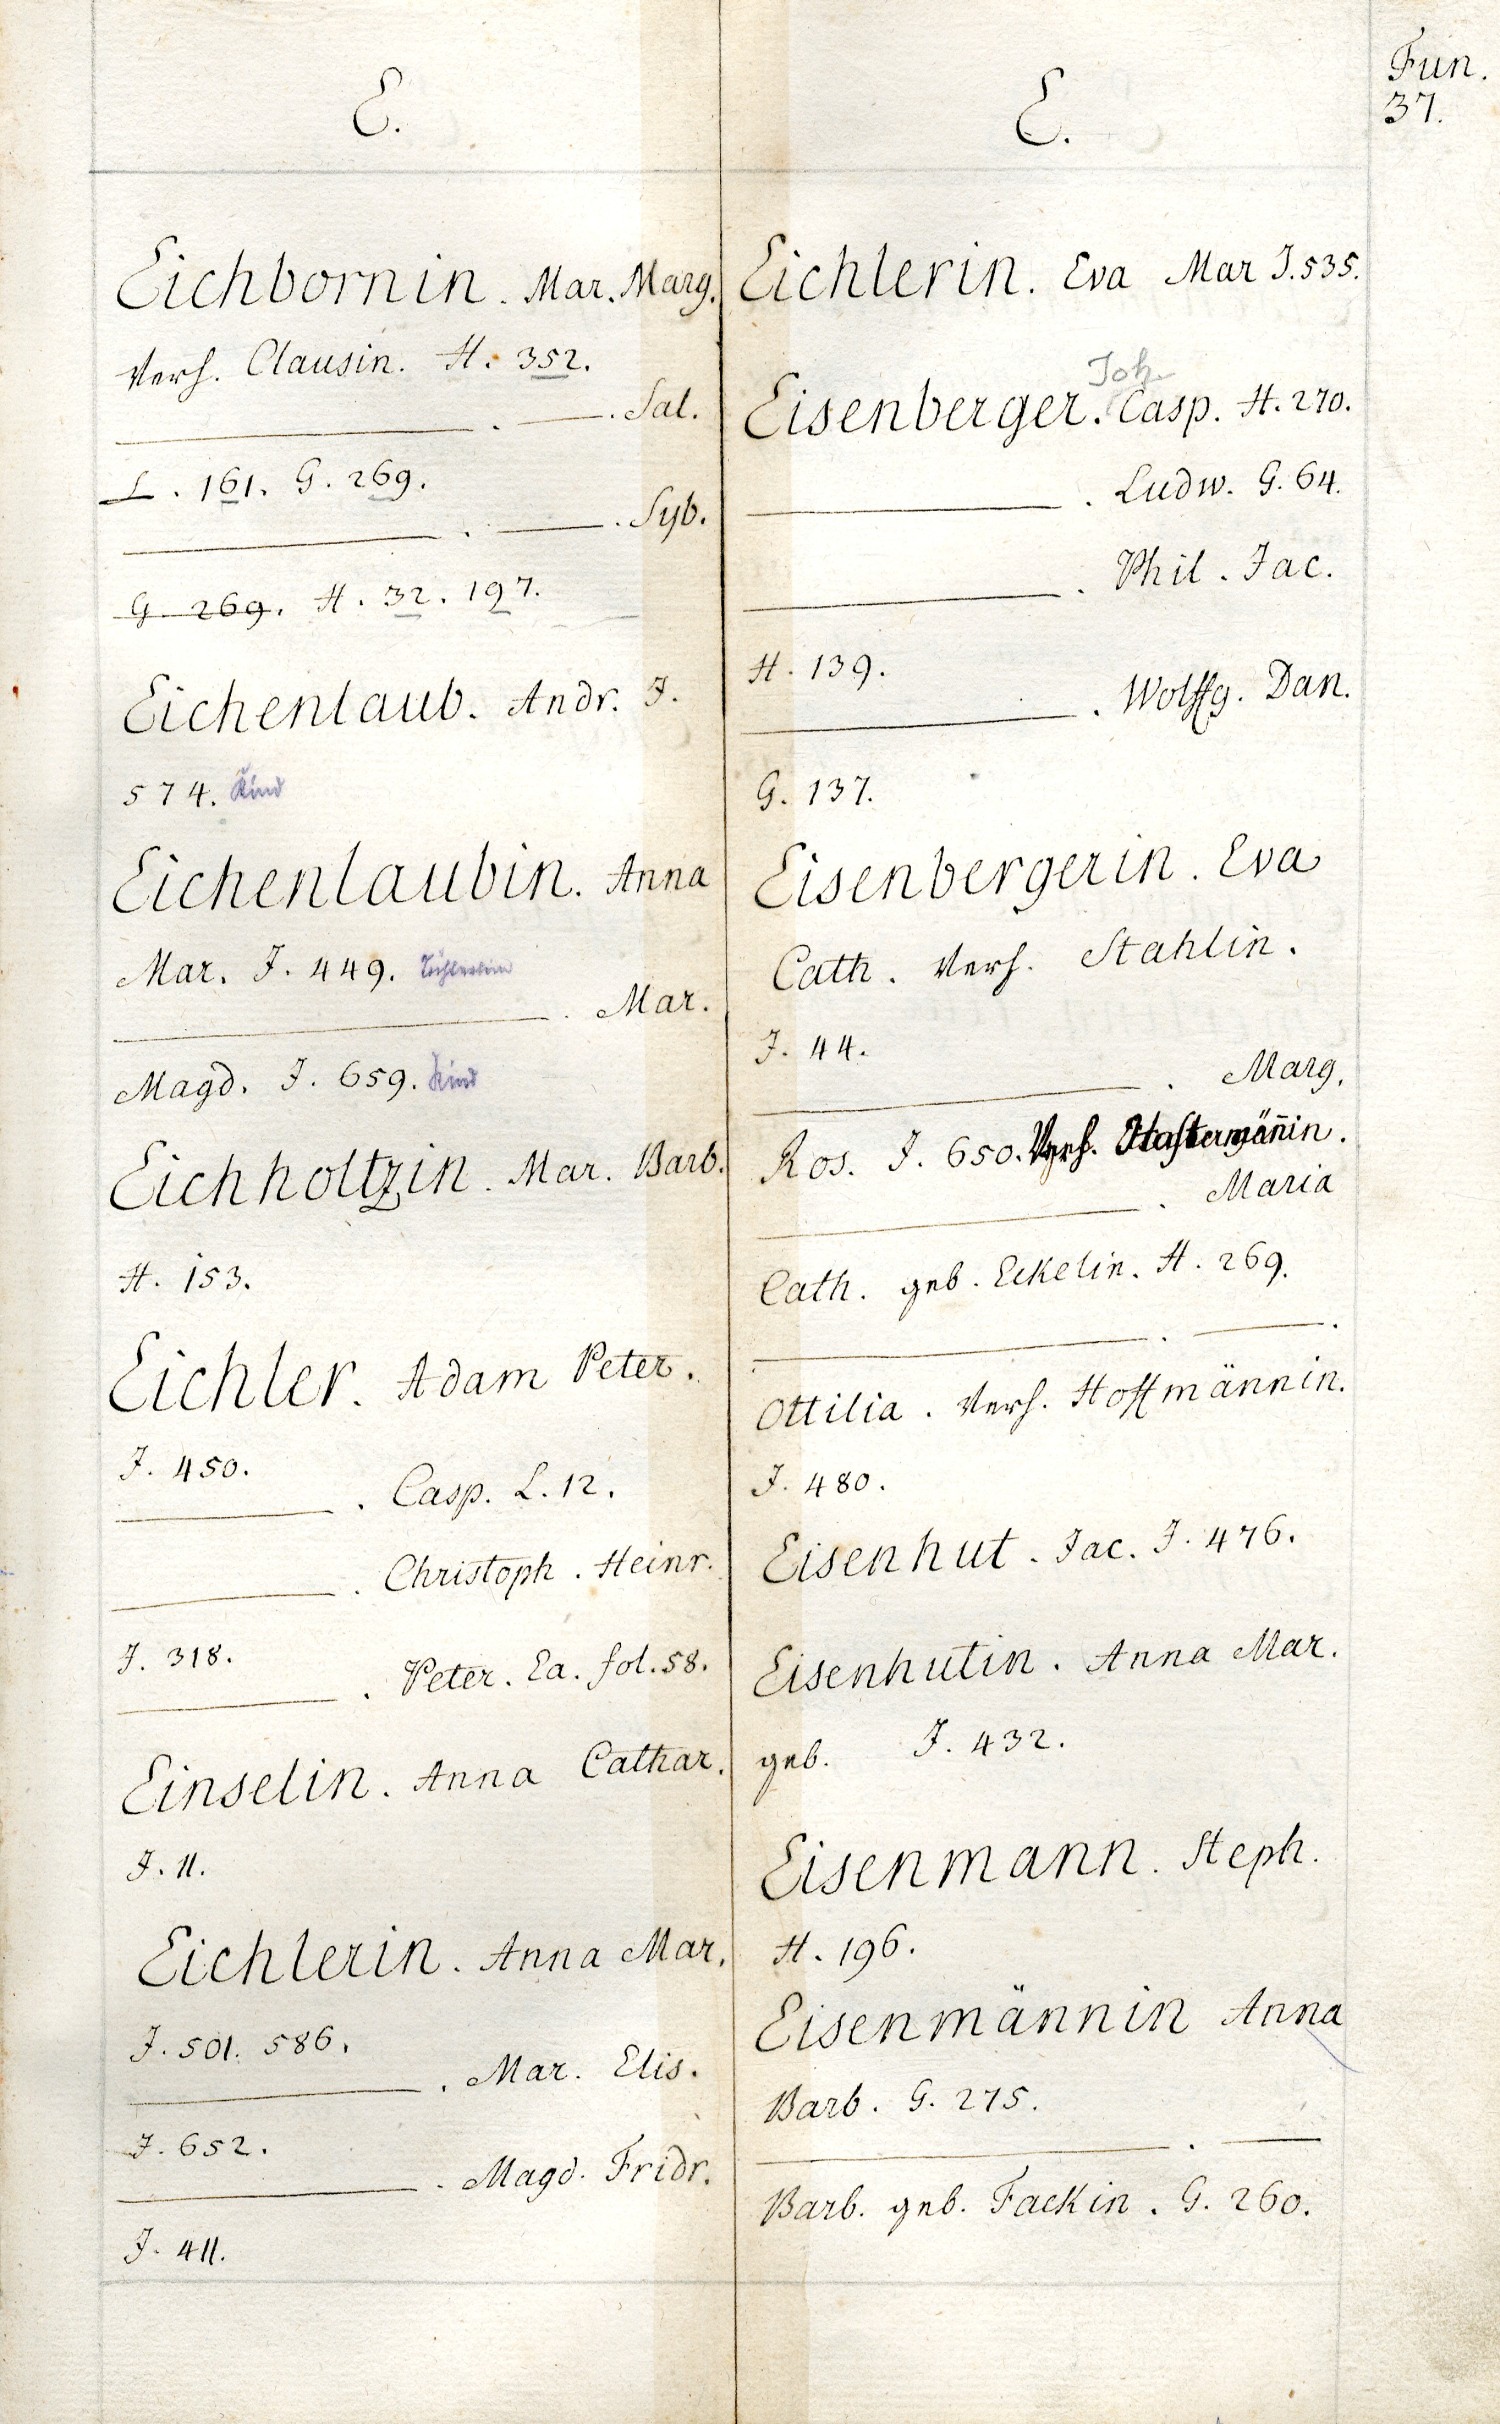 Fun.
37.
E.
Eichbornin. Mar. Marg.
Verh. Clausin. H. 352.
. . Sal.
L. 161. G. 269.
. . Syb.
G 269. H. 32. 197.
Eichenlaub. Andr. J.
574. Kind
Eichenlaubin. Anna
Mar. J. 449. Töchterlein
. Mar.
Magd. J. 659. Kind
Eichholtzin. Mar. Barb.
H. 153.
Eichler. Adam Peter.
J. 450.
. Casp. L. 12.
. Christoph. Heinr.
J. 318.
. Peter. Ea. fol. 58.
Einselin. Anna Cathar.
J. 11.
Eichlerin. Anna Mar.
J. 501. 586.
. Mar. Elis.
J. 652.
. Magd. Fridr.
J. 411.
E.
Eichlerin. Eva Mar J. 535.
Joh
Eisenberger. Casp. H. 270.
. Ludw. G. 64.
. Phil. Jac.
H. 139.
. Wolffg. Dan.
G. 137.
Eisenbergerin. Eva
Cath. Verh. Stahlin.
J. 44.
. Marg.
Ros. J. 650. Verh.
. Maria
Cath. geb. Eckelin. H. 269.
. .
Ottilia. Verh. Hoffmännin.
J. 480.
Eisenhut. Jac. J. 476.
Eisenhutin. Anna Mar.
geb. J. 432.
Eisenmann. Steph.
H. 196.
Eisenmännin Anna
Barb. G. 275.
.
Barb. geb. Fackin. G. 260.